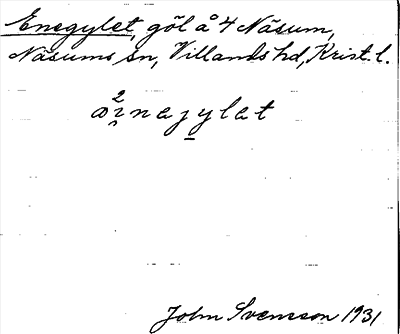 Enegylet, göl å 4 Näsum,
Näsums sn, Villands hd, Krist. l.
a²i̯najylat
John Svensson 1931